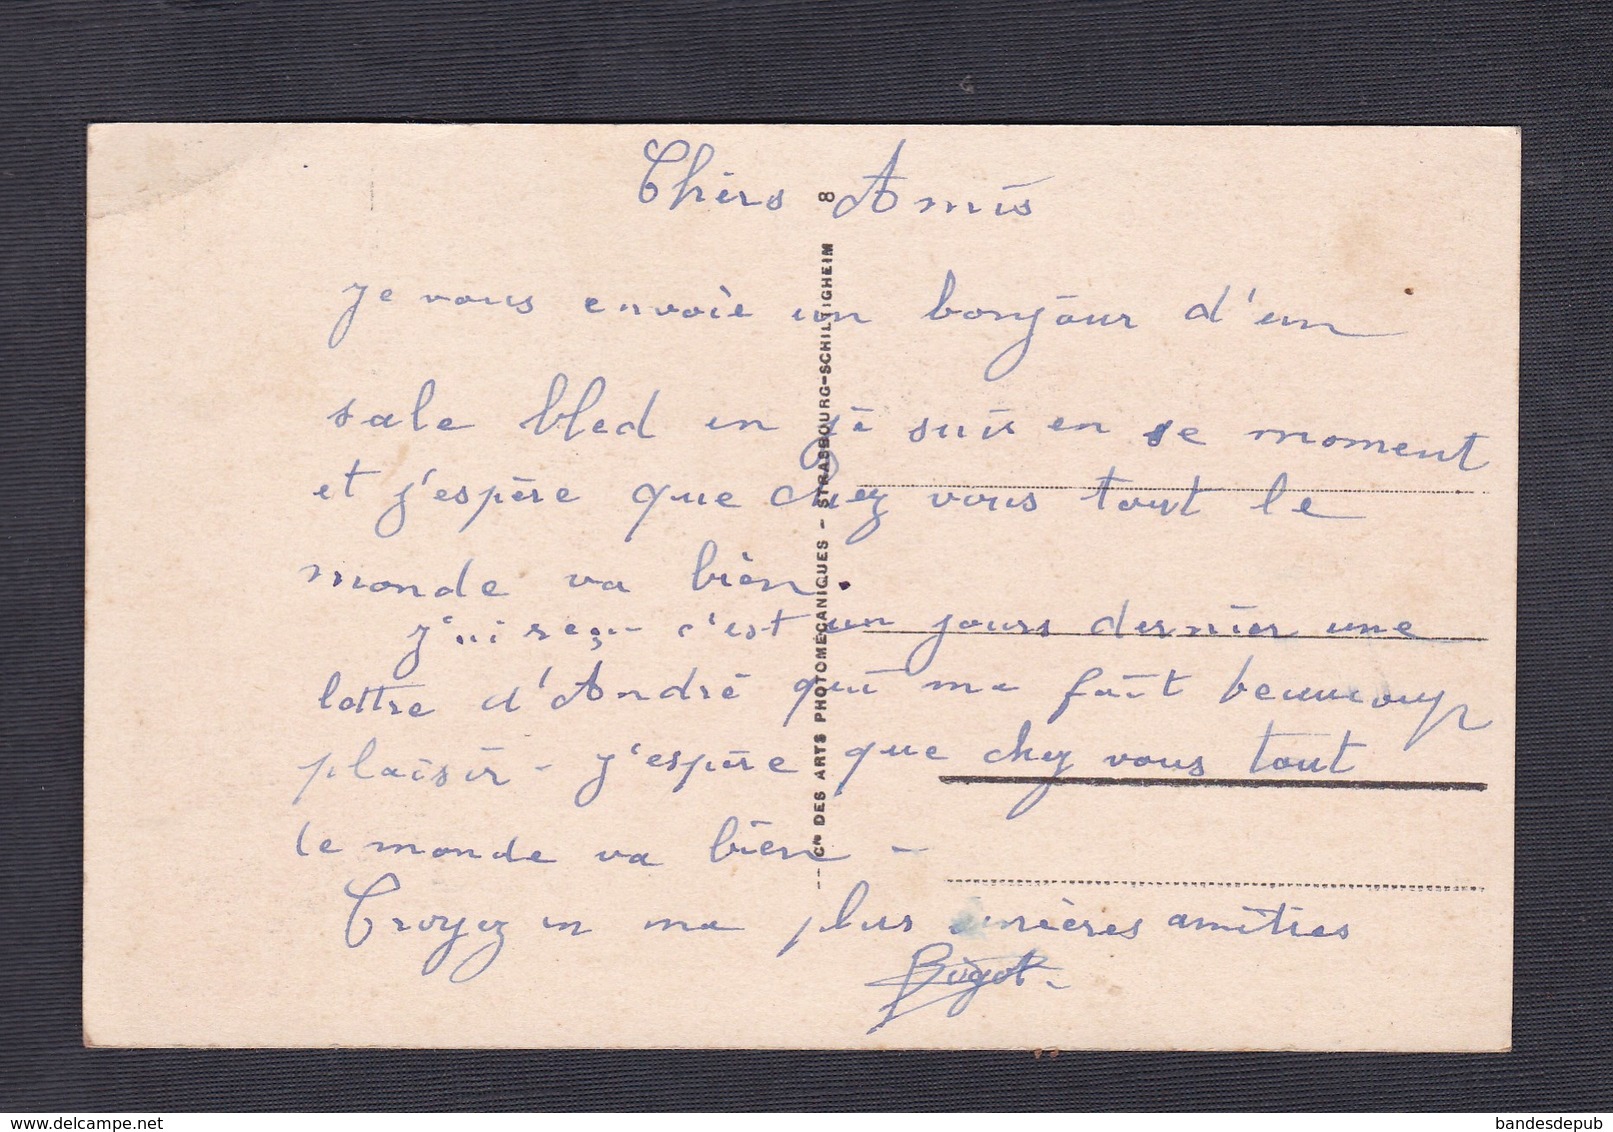 Chèrs Amis
je vous envoie un bonjour d'un
sale bled en je suis en se moment
et j'espère que chez vous tout le
monde va bien.
j'ai reçu c'est un jours dernier une
lettre d'André qui me fait beaucoup
plaisir - j'espère que chez vous tout
le monde va bien -
Croyez en ma plus amitiés
Bigot
8
-- Cie DES ARTS PHOTOMÉCANIQUES - STRASBOURG-SCHILTIGHEIM
delcampe.net
bandesdepub